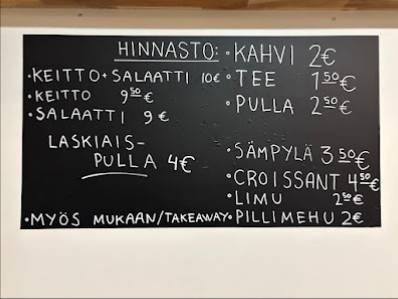 HINNASTO:
•KEITTO+SALAATTI 10€
•KEITTO 950€
•SALAATTI 9€
LASKIAIS-
PULLA 4€
•MYÖS MUKAAN/TAKEAWAY
•KAHVI 2€
•TEE 150€
•PULLA 250€
•SÄMPYLÄ 350€
•CROISSANT 450€
•LIMU 250€
•PILLIMEHU 2€